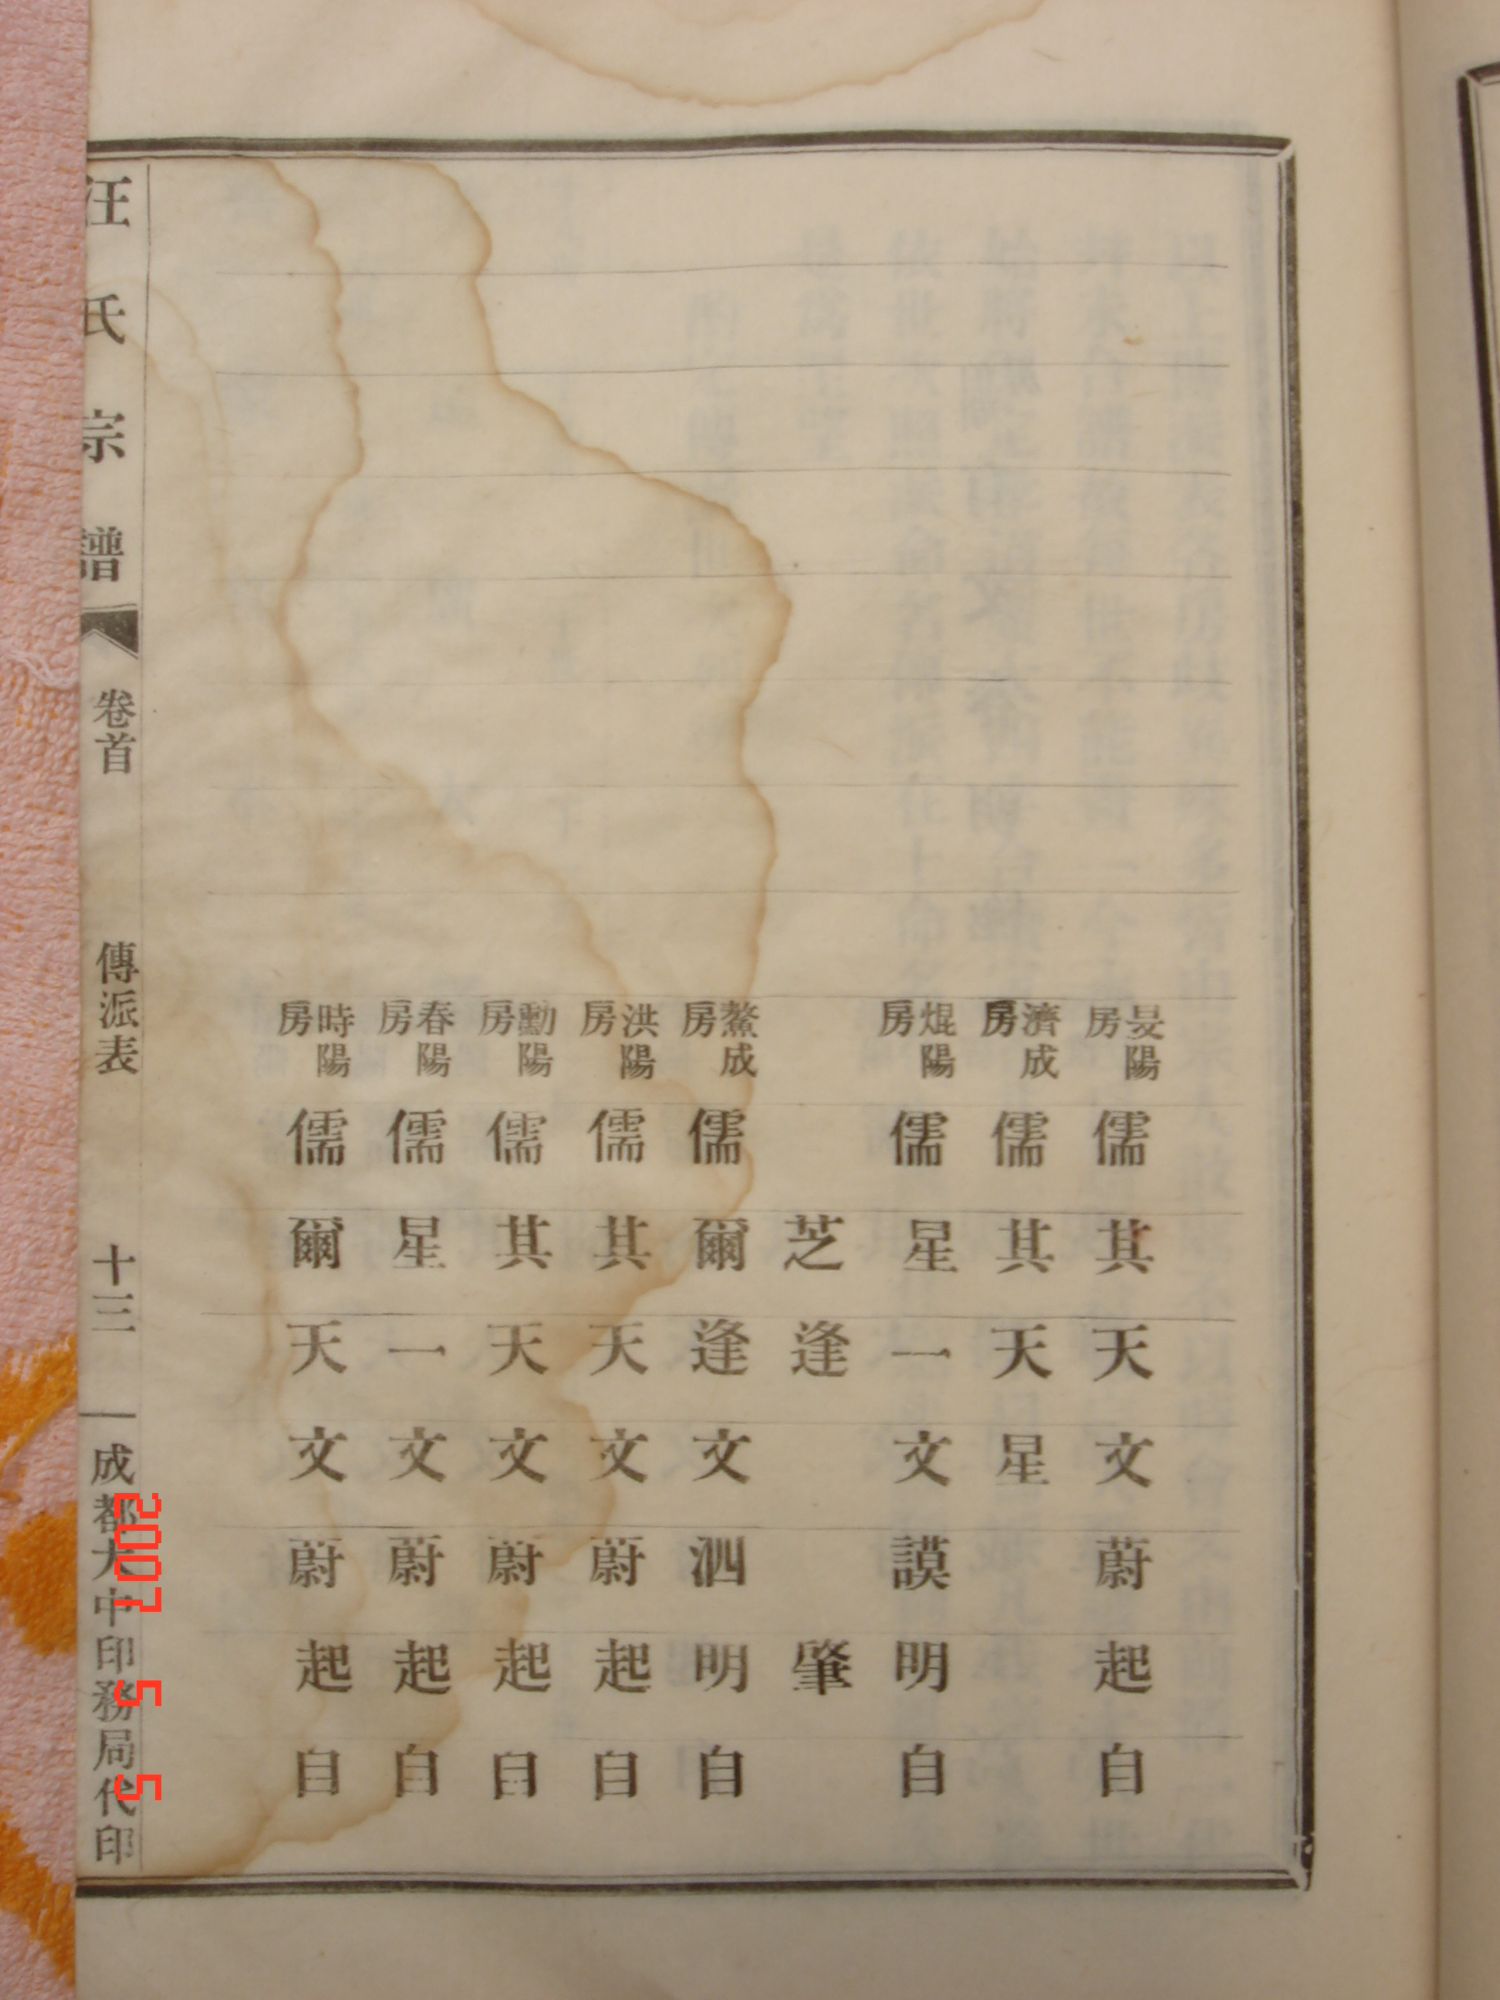 晏陽房 儒 其 天 文 蔚 起 自
濟成房 儒 其 天 星
焜陽房 儒 星 一 文 謨 明 自
芝 逢 肇
鰲成房 儒 爾 逢 文 泗 明 自
洪陽房 儒 其 天 文 蔚 起 自
勳陽房 儒 其 天 文 蔚 起 自
春陽房 儒 星 一 文 蔚 起 自
時陽房 儒 爾 天 文 蔚 起 自
汪氏宗譜 卷首 傳派表 十三 成都大中印務局代印
2007 5 5